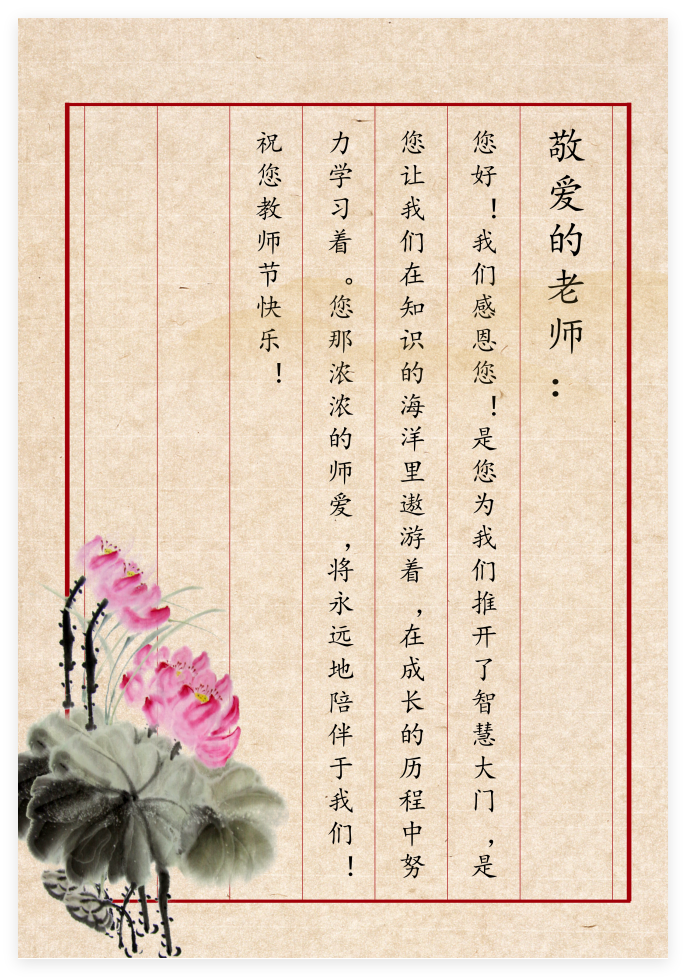 敬爱的老师：
您好！我们感恩您！是您为我们推开了智慧大门，是
您让我们在知识的海洋里遨游着，在成长的历程中努
力学习着。您那浓浓的师爱，将永远地陪伴于我们！
祝您教师节快乐！